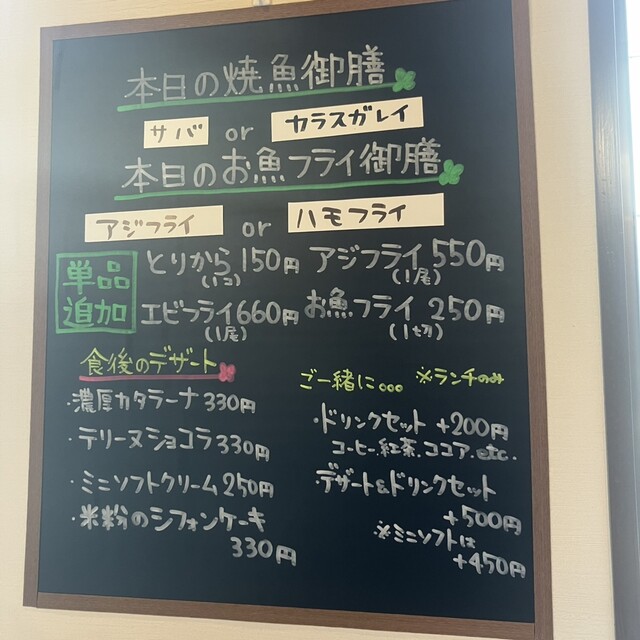 本日の焼魚御膳
サバ or カラスガレイ
本日のお魚フライ御膳
アジフライ or ハモフライ
単品追加
とりから 150円 (1コ)
アジフライ 550円 (1尾)
エビフライ 660円 (1尾)
お魚フライ 250円 (1切)
食後のデザート
・濃厚カタラーナ 330円
・テリーヌショコラ 330円
・ミニソフトクリーム 250円
・米粉のシフォンケーキ
330円
ご一緒に... ※ランチのみ
・ドリンクセット +200円
コーヒー.紅茶.ココア.etc.
・デザート&ドリンクセット
+500円
※ミニソフトは
+450円